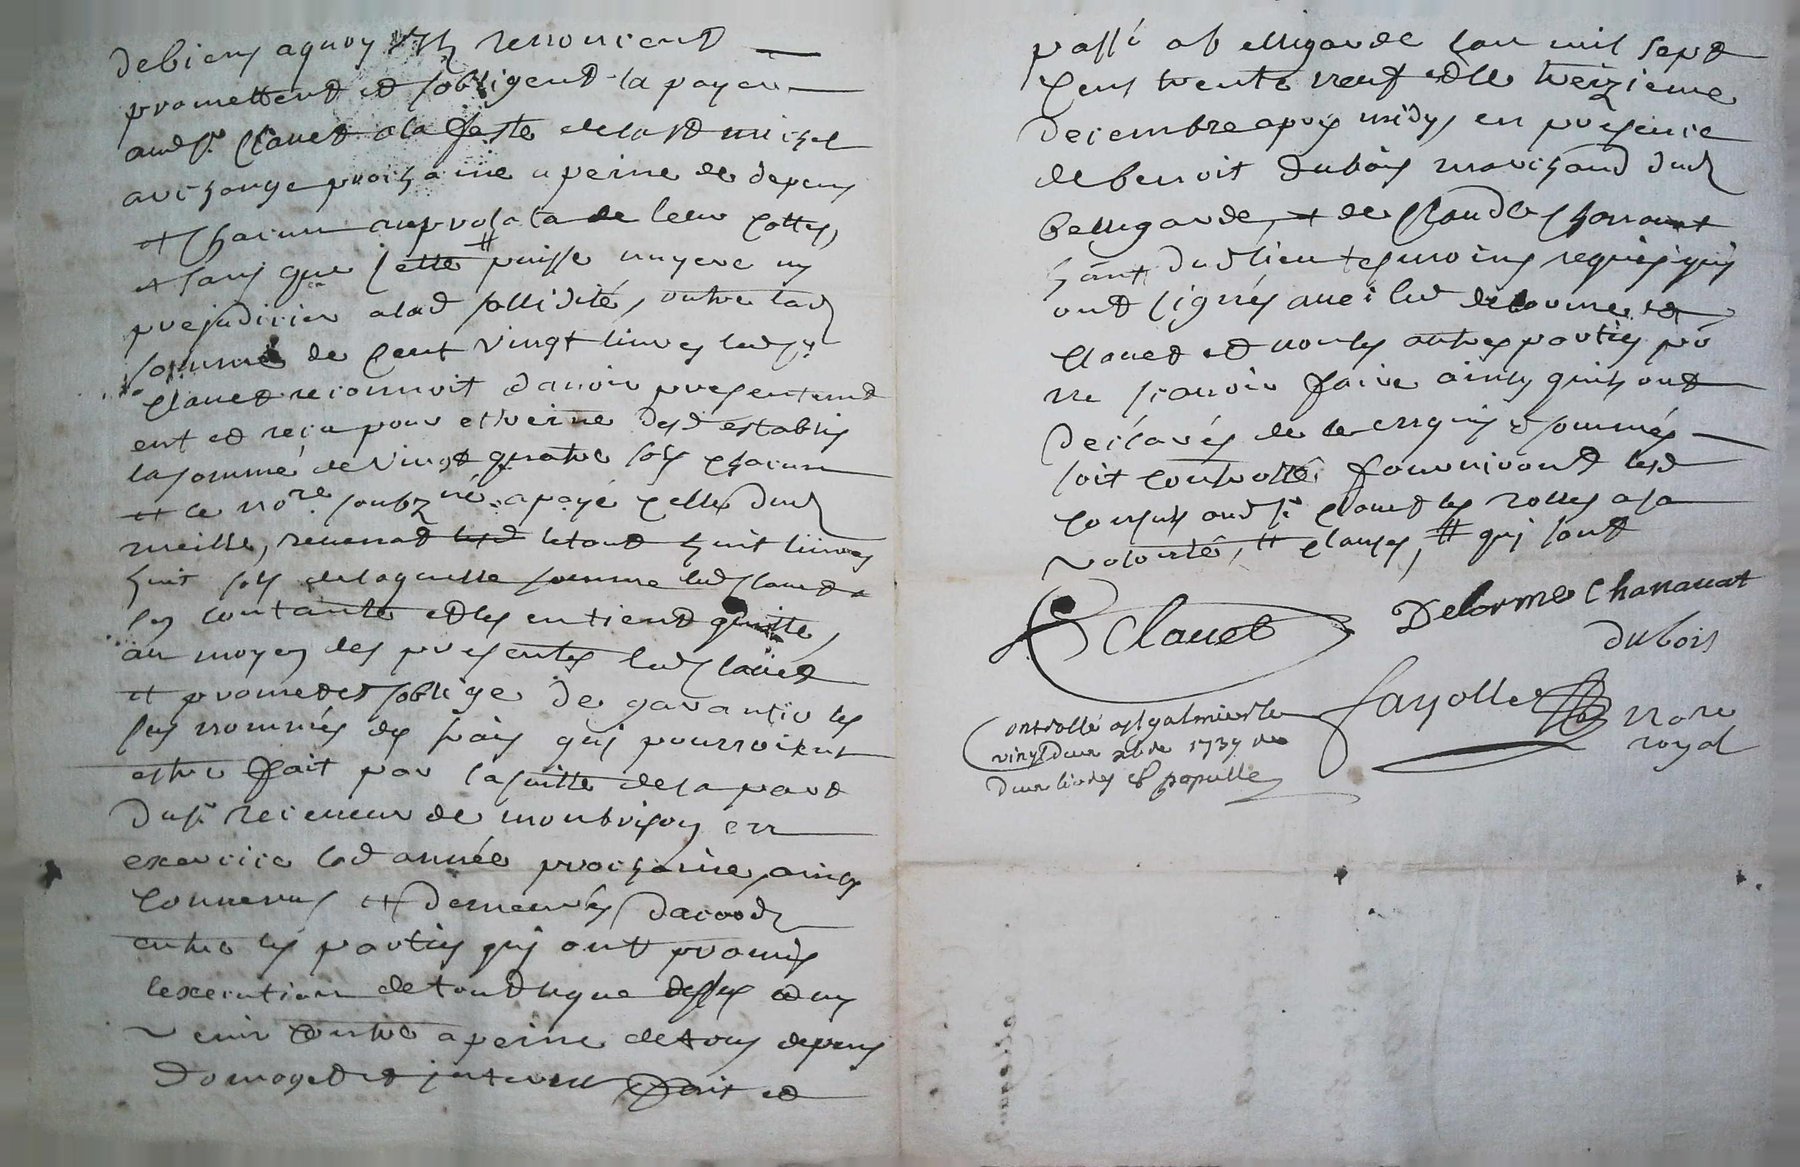 debiens aquoy ils renoncent
promettent et sobligent la payer
audsr. Clauet ala feste de la st michel
archange prochaine a peine de depens
et chacun au prorata de leur cottes,
et sans que cette # puisse nuyre ny
prejudicier alad sollidité, outre lad
somme de cent vingt livres ledsr.
Clauet reconnoit dauoir presentemt
eut et reçu pour estreine desd establis
la somme de vingt quatre sols chacun
et le nore. soubzné apayé celle dud
meille, revenat le tout huit livres
huit sols de laquelle somme led Clauet
se contante et les en tient quitte,
au moyen des presentes led Clauet
et promet et soblige de garantir les
sus nommés des frais qui pourroient
estre fait par la suitte de la part
du sr. receueur de montbrison en
exercice lad année prochaine, ainsy
conuenus et demeurés dacord
entre les parties qui ont promis
lexecution de tout ce que dessus et ny
venir contre a peine de tous depens
domages et interest fait et
passé a bellegarde lan mil sept
cens trente neuf et le treizieme
decembre apres midy en presence
de benoit dubois marchand dud
bellegarde, et de Claude Chanauat
dud lieu tesmoins requis qui
ont signés auec led delorme et
Clauet et non les autres parties pr
ne scauoir faire ainsy quils ont
declarés de ce enquis et sommés
soit controllé, fourniront lesd
consuls audsr. Clauet les rolles a sa
volonté, # clause, # qui sont
Clauet
Delorme Chanauat
dubois
fayolle nore
royal
Controllé a st galmier le
vingt deux xbre 1739 reçu
deux livres